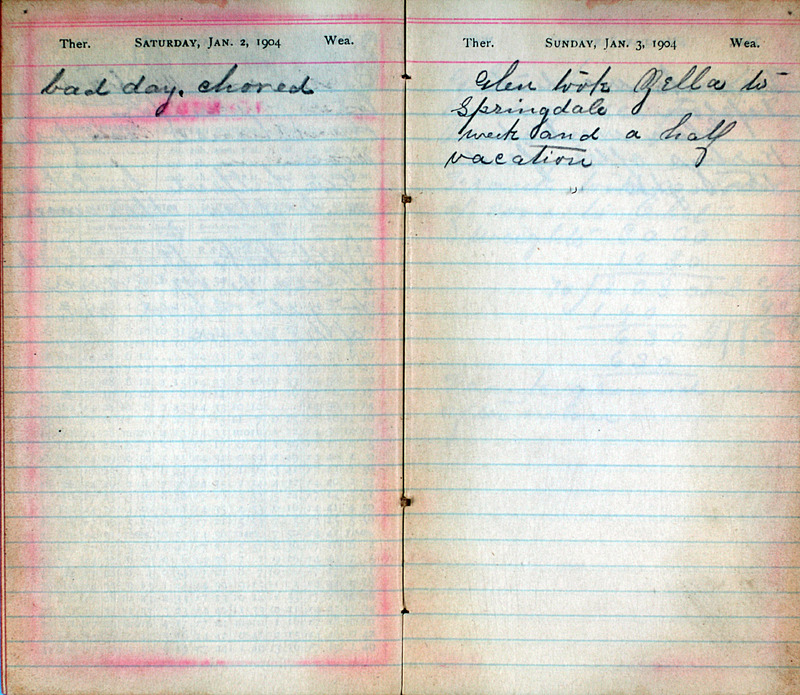 Ther. Saturday, Jan. 2, 1904 Wea.
bad day, chored
Ther. Sunday, Jan. 3, 1904 Wea.
Glen took Zella to
Springdale
week and a half
vacation